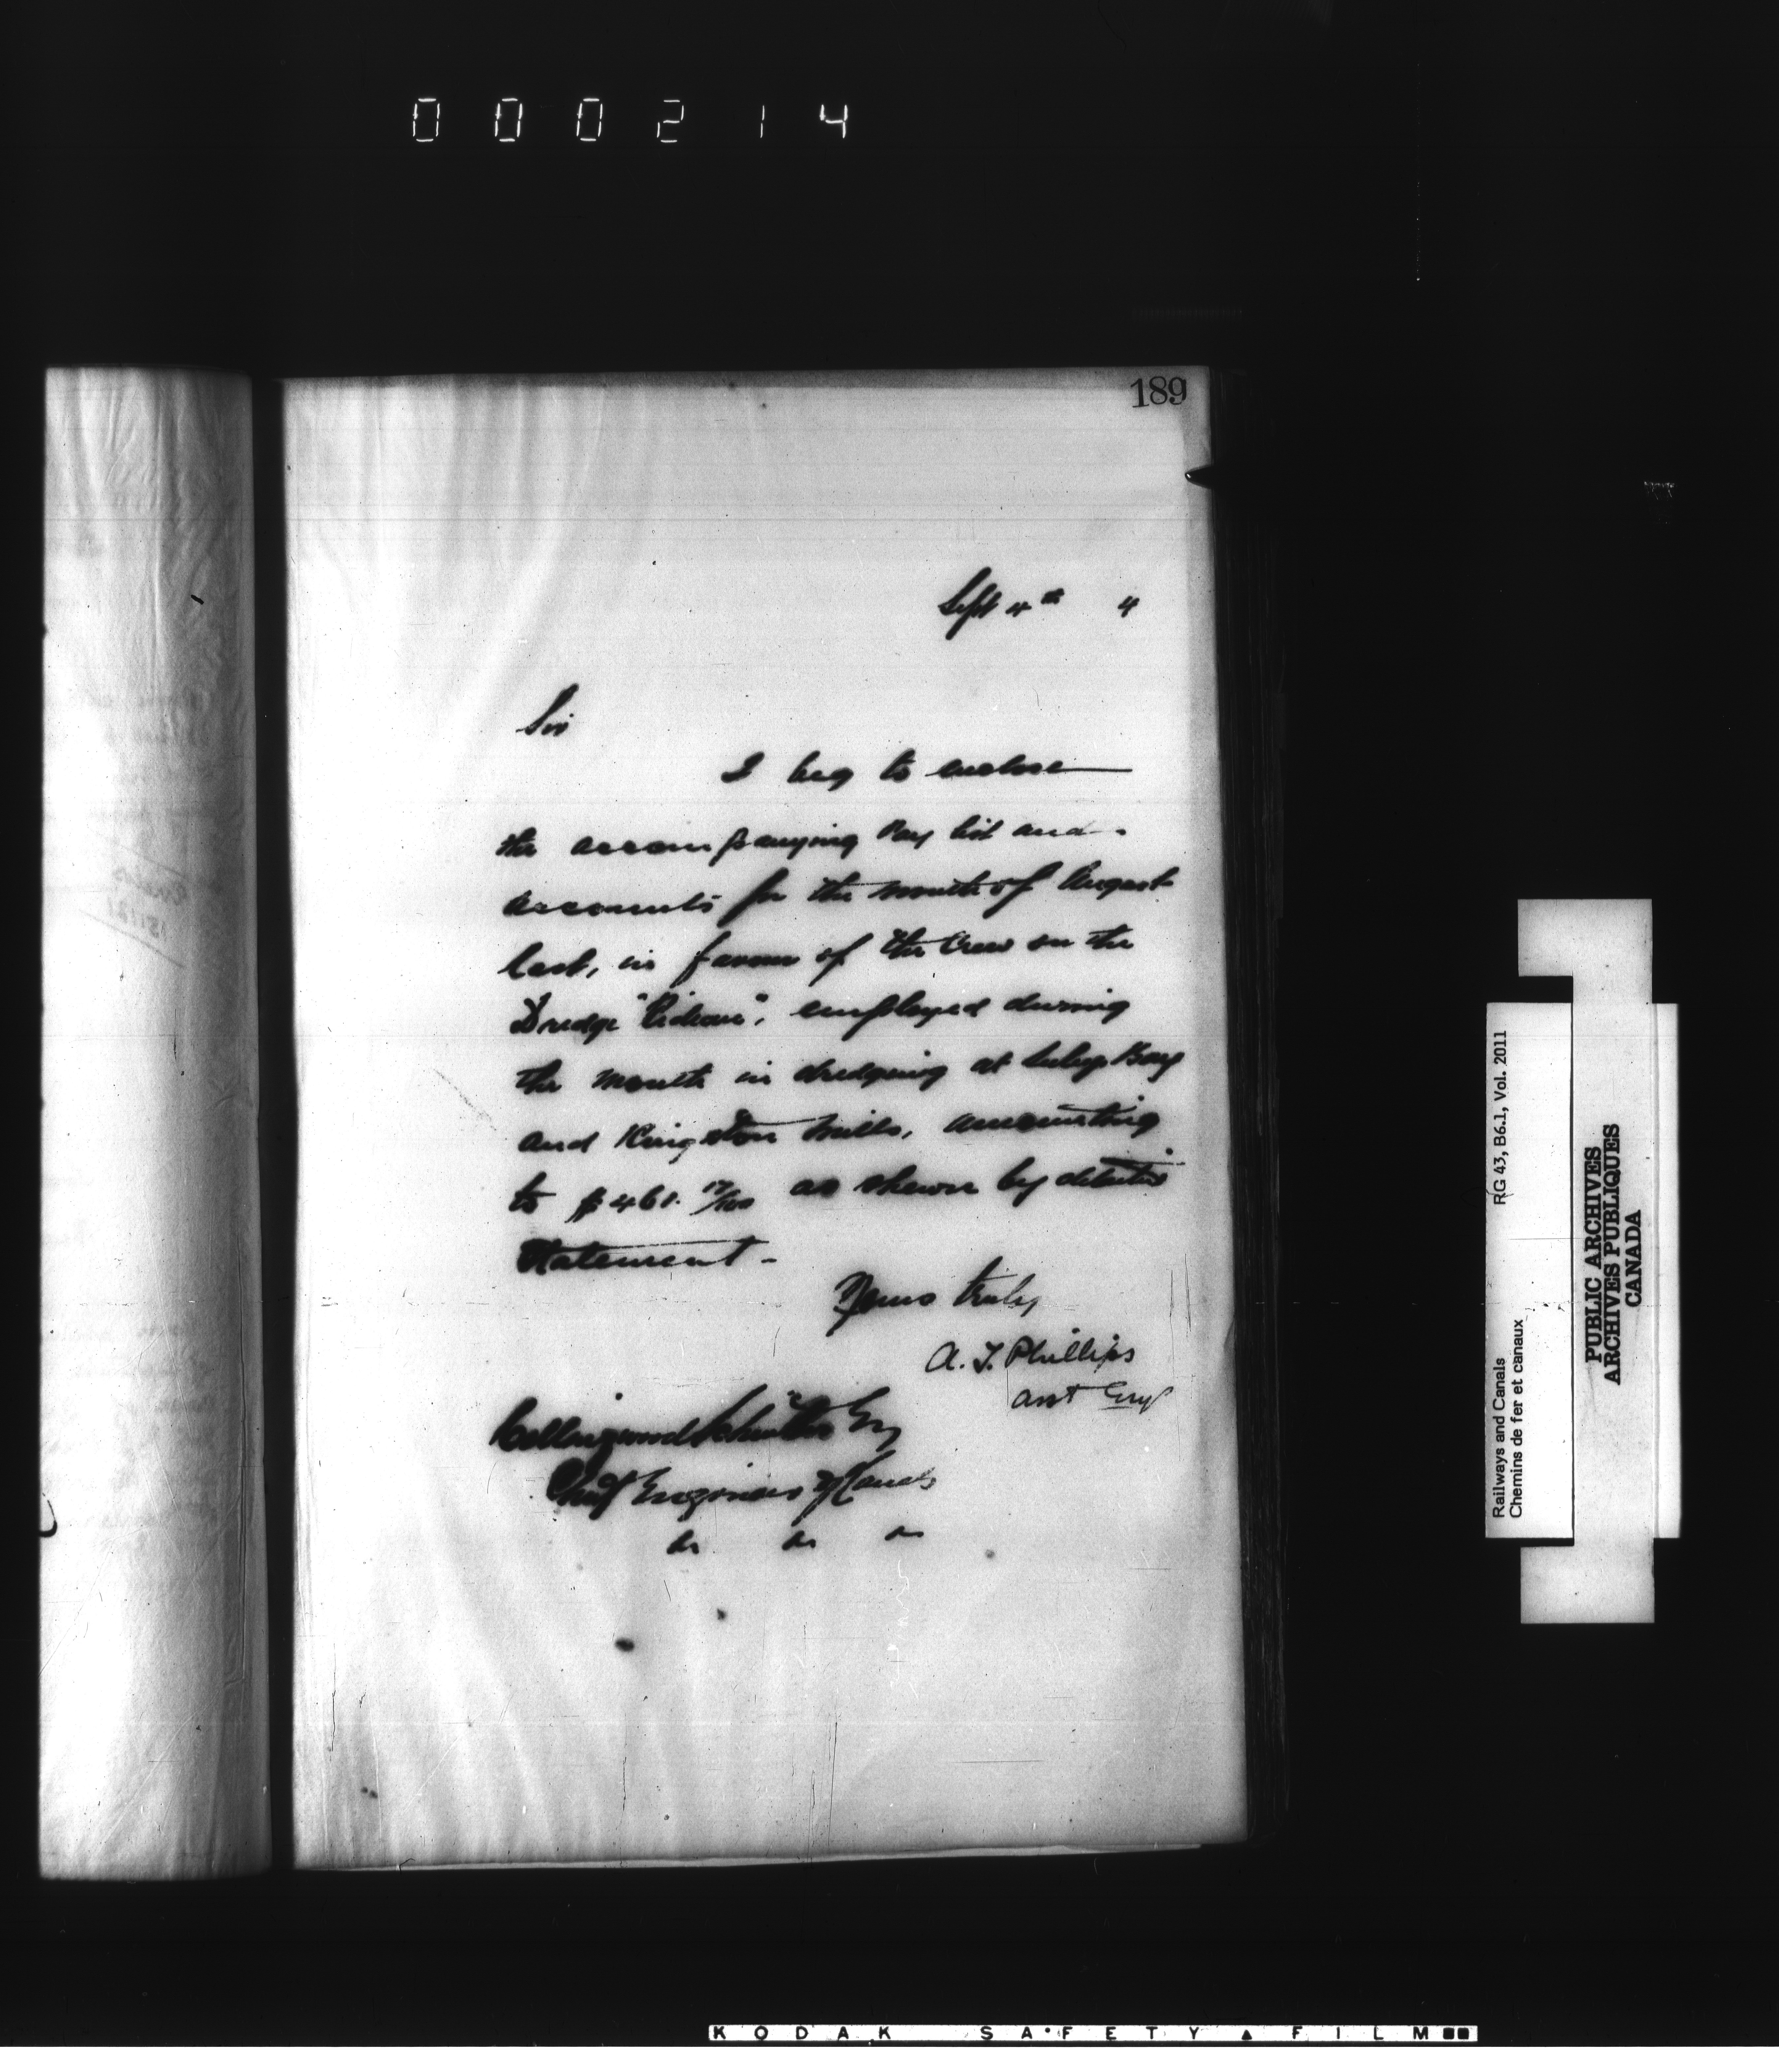 000214
189
Sept 4th 4
Sir
I beg to enclose
the accompanying Pay list and
accounts for the month of August
last, in favour of the Crew on the
Dredge "Rideau", employed during
the month in dredging at Bay
and Kingston Mills, amounting
to $461. 17/100 as shewn by
Statement -
Yours truly
A. T. Phillips
Asst Engr
Collingwood Schreiber Esq
Chief Engineer of Canals
&c &c &c
RG 43, B6.1, Vol. 2011
Railways and Canals
Chemins de fer et canaux
PUBLIC ARCHIVES
ARCHIVES PUBLIQUES
CANADA
KODAK SAFETY FILM